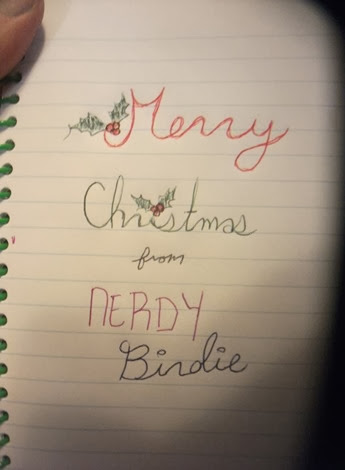 Merry
Christmas
from
NERDY
Birdie